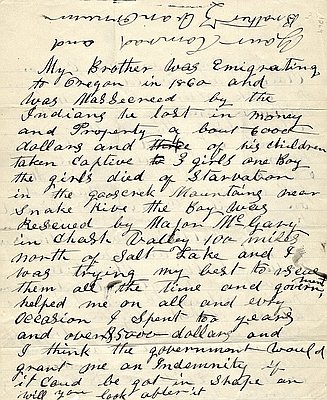 My Brother was Emigrating
to Oregon in 1860 and
was Massecreed by the
Indians he lost in money
and Property a bout 6000
dollars and of his children
taken captive 3 girls one Boy
the girls died of Starvation
in the gooscrek Mountains near
Snake Rive the Boy was
Resieved by Major McGary
in Chash Valley 100 miles
north of Salt Lake and I
was trying my best to
them all the time and government
helped me on all and evry
occasion I spent too years
and over $5000 dollars and
I think the government would
grant me an Indemnity if
it Coud be got in shape an
will you look after it
Your Comrad and
Brother Z Van Ornum